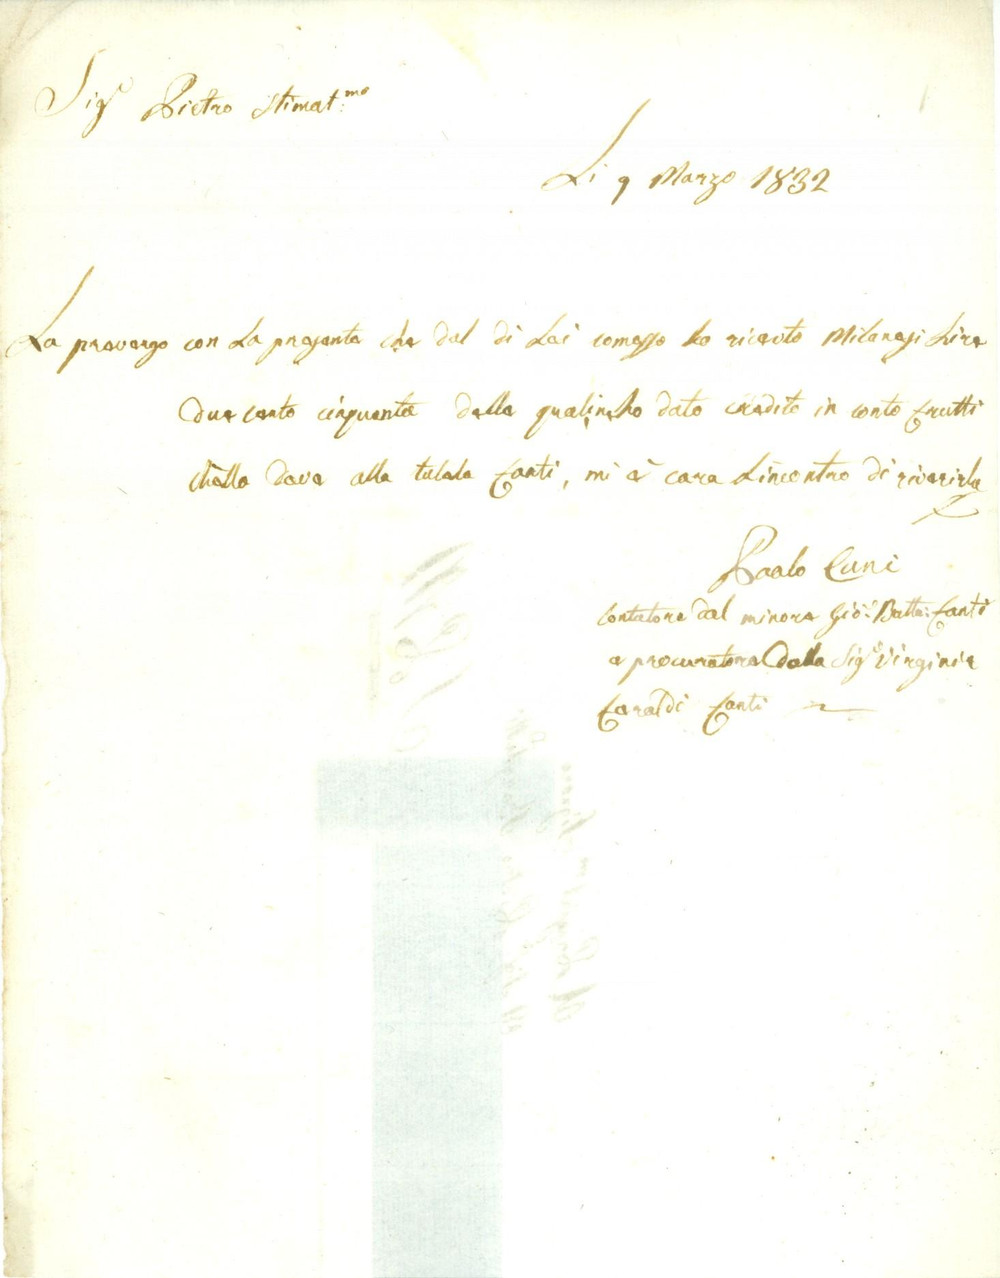 Sigr Pietro Stimat:mo
Li 9 Marzo 1832
La provengo con La presente che dal di Lei comesso ho riceuto Milanesi Lire
due cento cinquanta delle quali ne ho dato credito in conto frutti
chella deve alla tutela Conti, mi è cara L'incontro di riverirla
Paolo Cuni
Contatore del minore Gio: Batta: Conti
e procuratore della Sigra Virginia
Conti